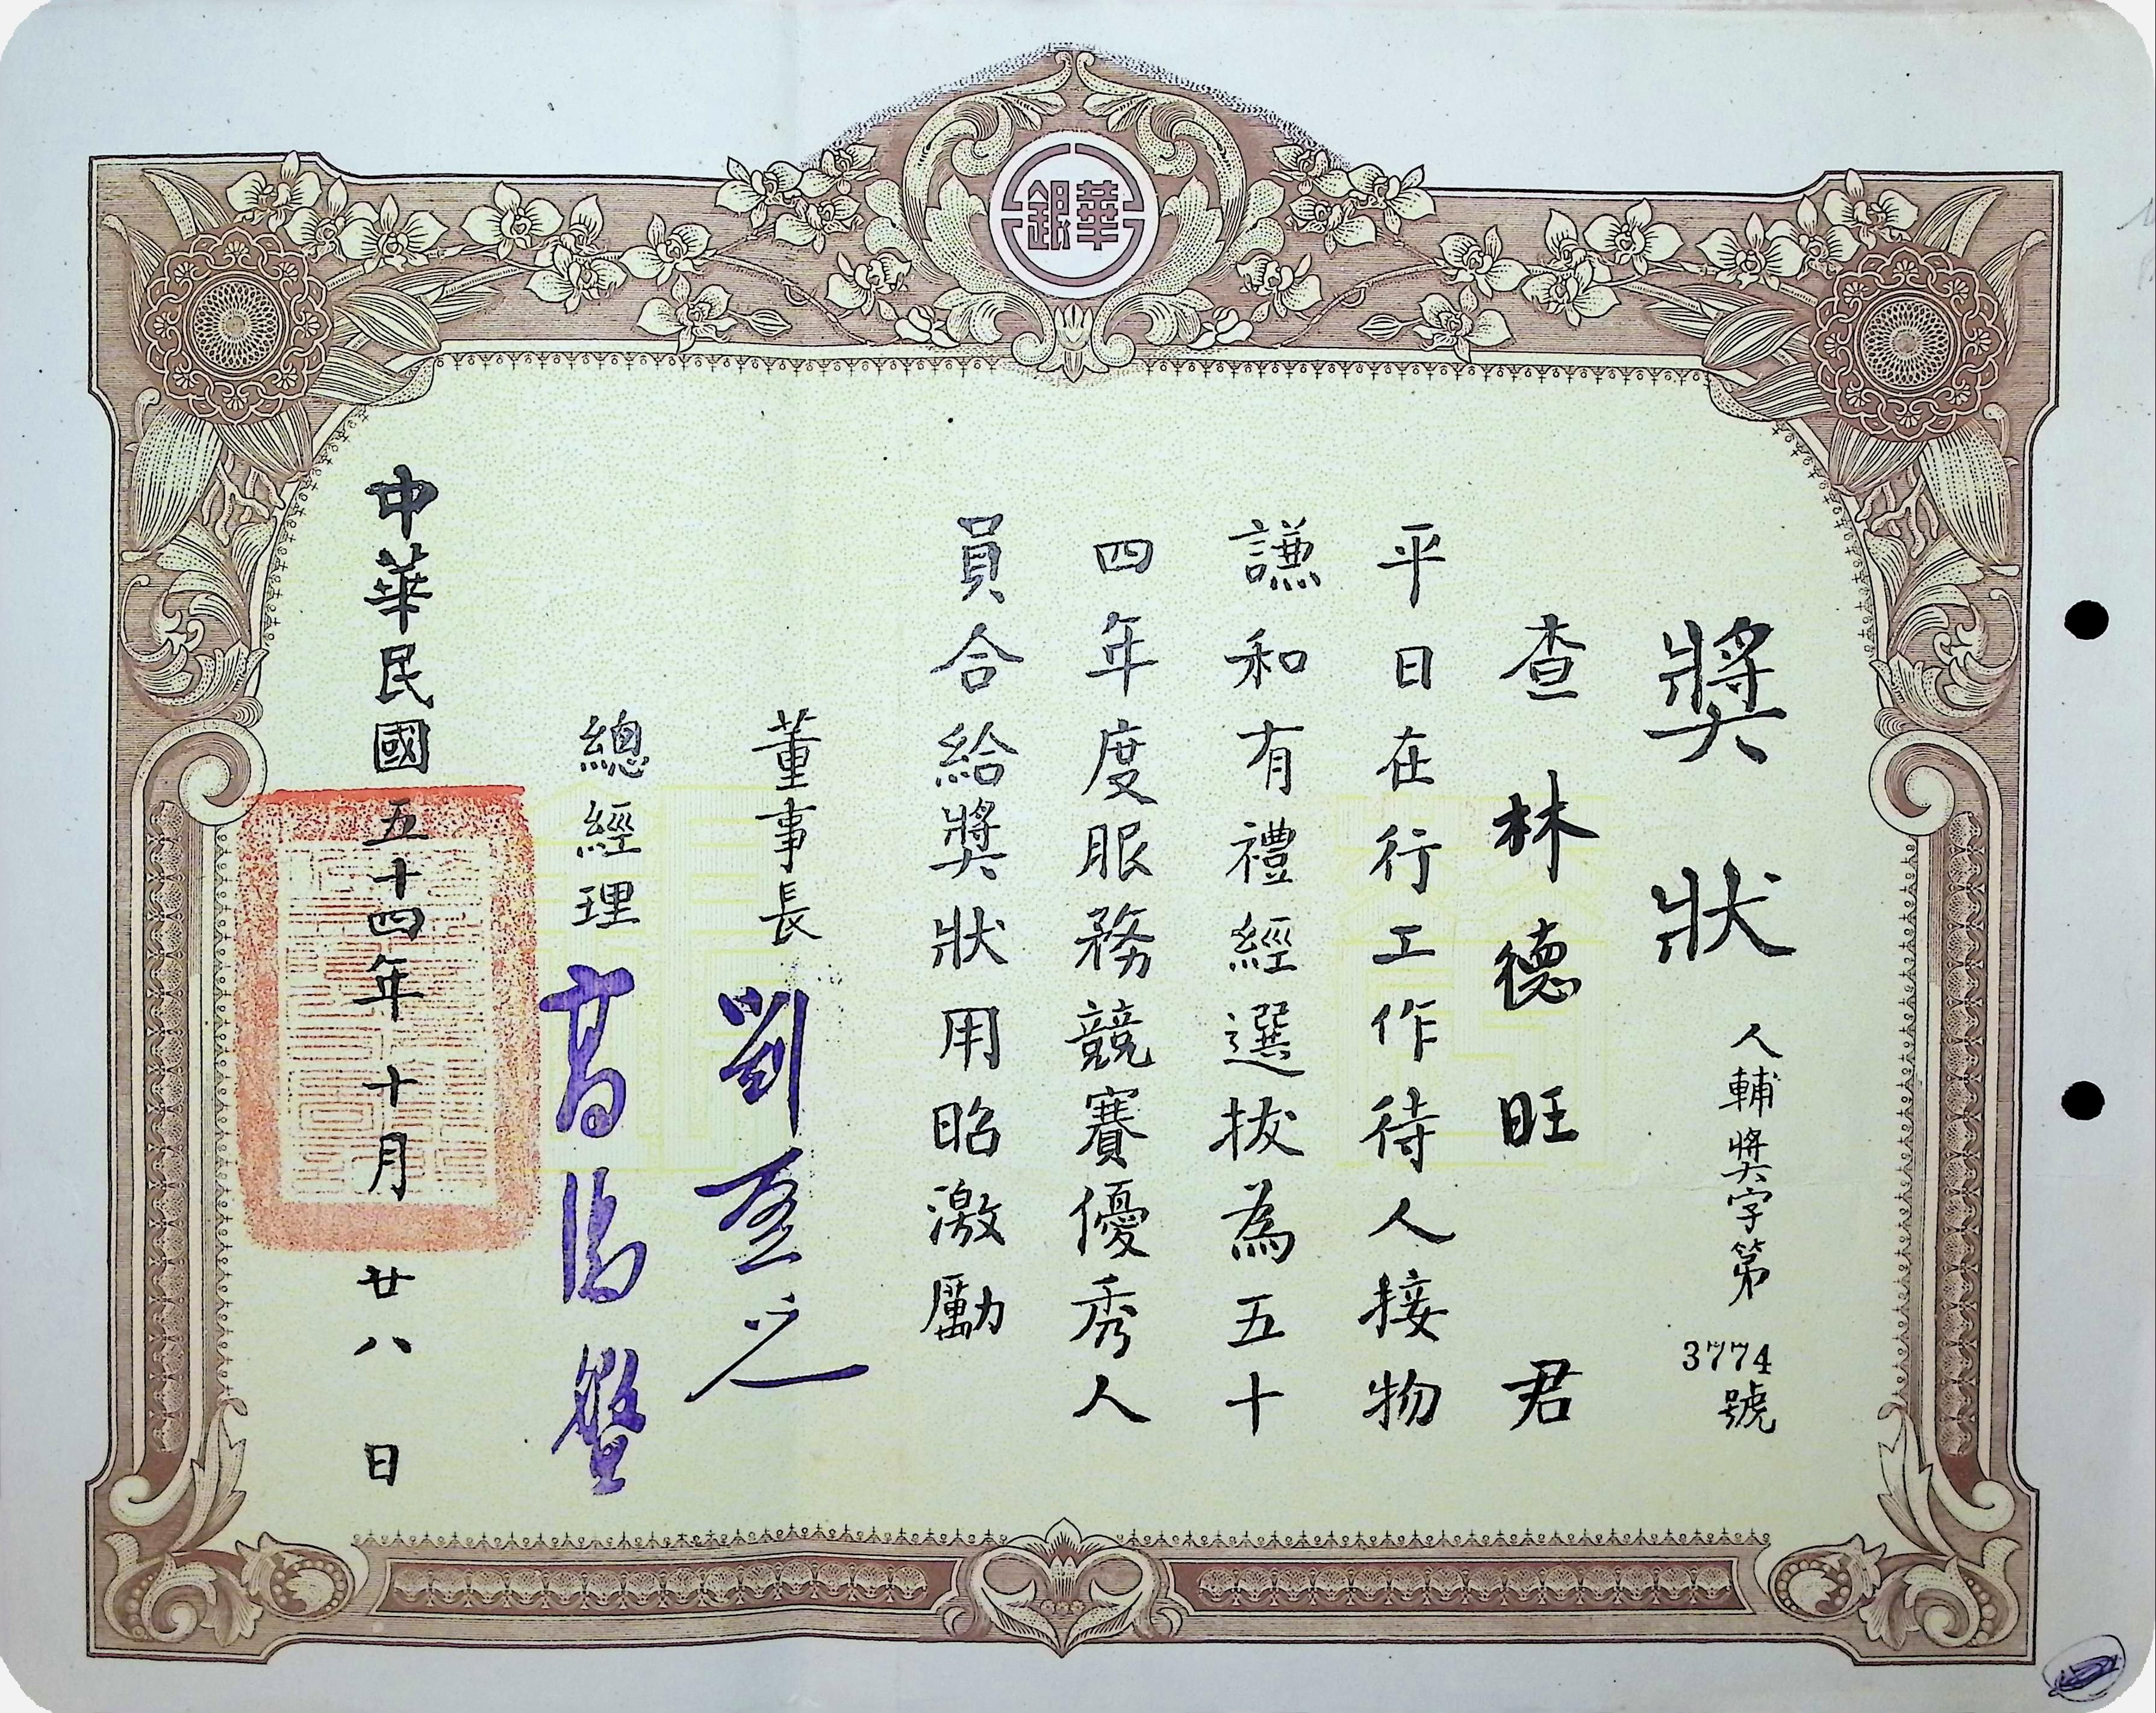 華銀
獎狀
人輔獎字第3774號
查林德旺君
平日在行工作待人接物
謙和有禮經選拔為五十
四年度服務競賽優秀人
員合給獎狀用昭激勵
董事長 劉啟光
總經理 高湯盤
中華民國五十四年十月廿八日